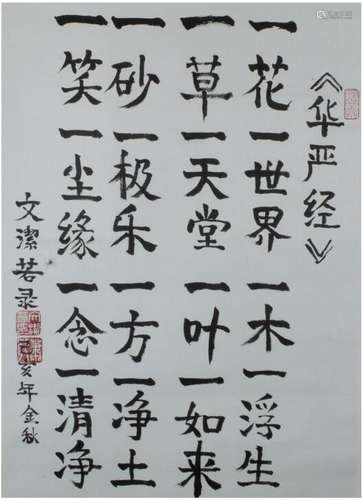 《华严经》
一花一世界一木一浮生
一草一天堂一叶一如来
一砂一极乐一方一净土
一笑一尘缘一念一清净
文潔若录
己亥年金秋